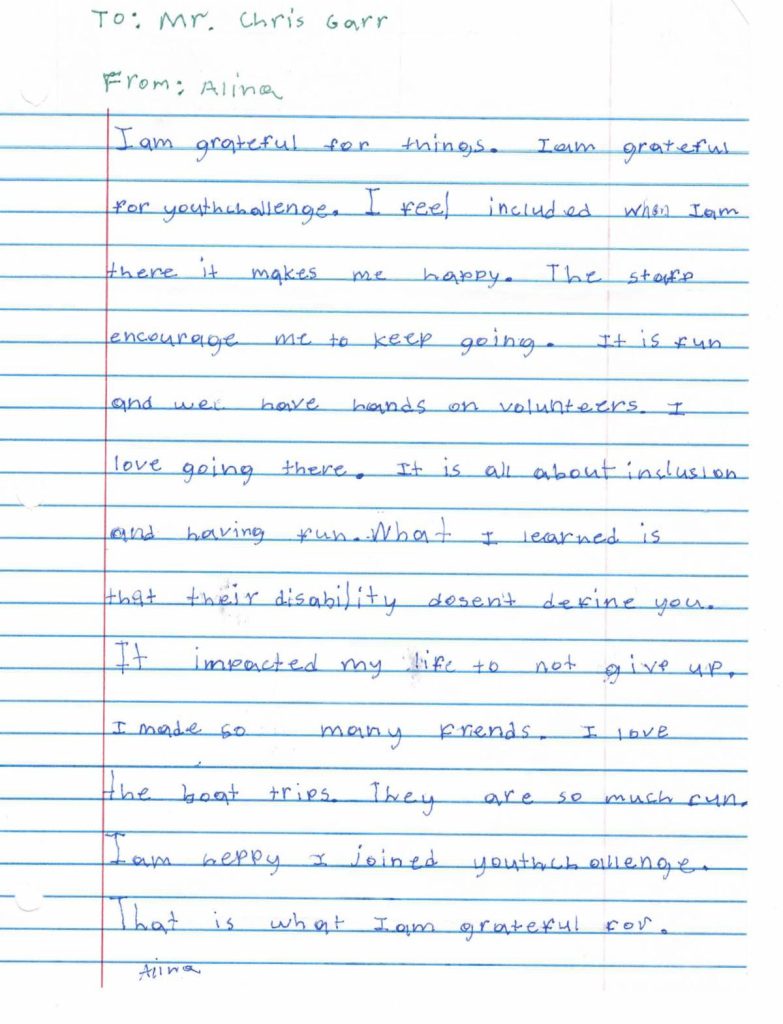 To: Mr. Chris Garr
From: Alina
I am grateful for things. I am grateful
for youthchallenge. I feel included when I am
there it makes me happy. The staff
encourage me to keep going. It is fun
and we have hands on volunteers. I
love going there. It is all about inclusion
and having fun. What I learned is
that their disability dosen't define you.
It impacted my life to not give up.
I made so many friends. I love
the boat trips. They are so much fun.
I am heppy I joined youthchallenge.
That is what I am grateful for.
Alina